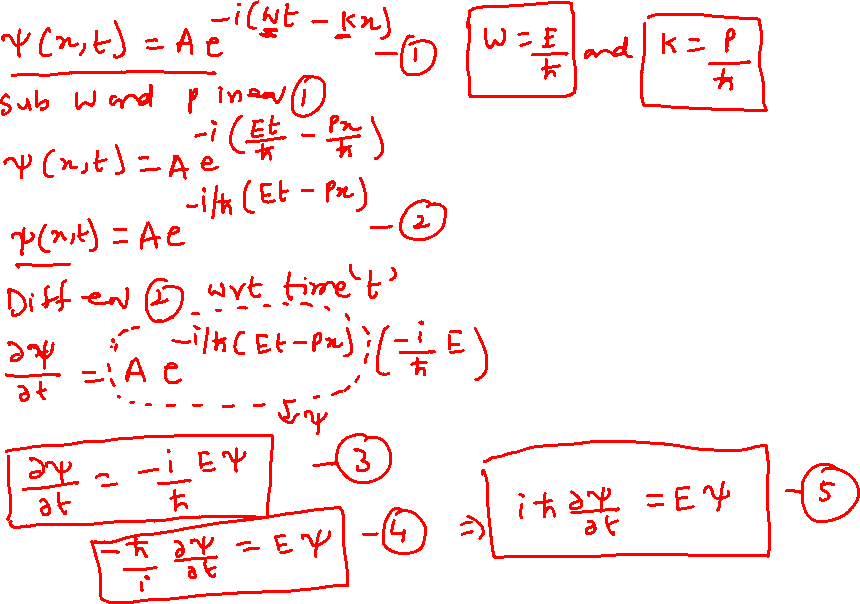 ψ(x,t) = A e^{-i(wt - kx)} - ① w = E/ħ and k = P/ħ
sub w and p in eq ①
ψ(x,t) = A e^{-i(Et/ħ - Px/ħ)}
ψ(x,t) = A e^{-i/ħ(Et - Px)} - ②
Diff eq ② wrt time 't'
∂ψ/∂t = A e^{-i/ħ(Et - Px)} (-i/ħ E)
ψ
∂ψ/∂t = -i/ħ E ψ - ③
-ħ/i ∂ψ/∂t = E ψ - ④ ⇒ iħ ∂ψ/∂t = E ψ - ⑤